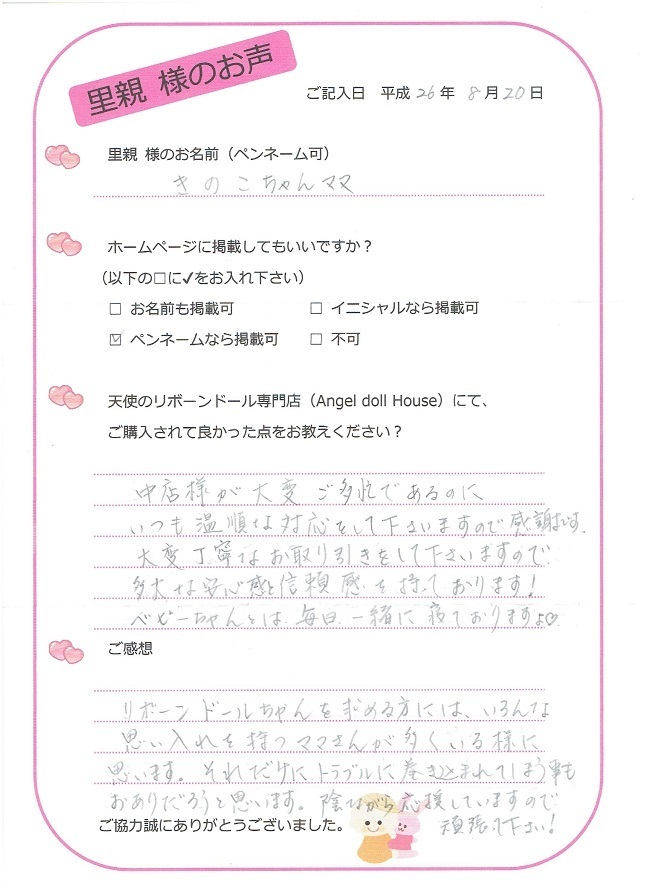 里親 様のお声
ご記入日 平成 26 年 8 月 20 日
里親 様のお名前（ペンネーム可）
きのこちゃんママ
ホームページに掲載してもいいですか？
（以下の□に✓をお入れ下さい）
□ お名前も掲載可 □ イニシャルなら掲載可
☑ ペンネームなら掲載可 □ 不可
天使のリボーンドール専門店（Angel doll House）にて、
ご購入されて良かった点をお教えください？
中店様が大変ご多忙であるのに
いつも温順な対応をして下さいますので感謝です。
大変丁寧なお取り引きをして下さいますので
多大な安心感と信頼感を持っております！
ベビーちゃんとは、毎日一緒に寝ておりますよ♡
ご感想
リボーンドールちゃんを求める方には、いろんな
思い入れを持つママさんが多くいる様に
思います。それだけにトラブルに巻き込まれてしまう事も
おありだろうと思います。陰ながら応援していますので
頑張って下さい！
ご協力誠にありがとうございました。